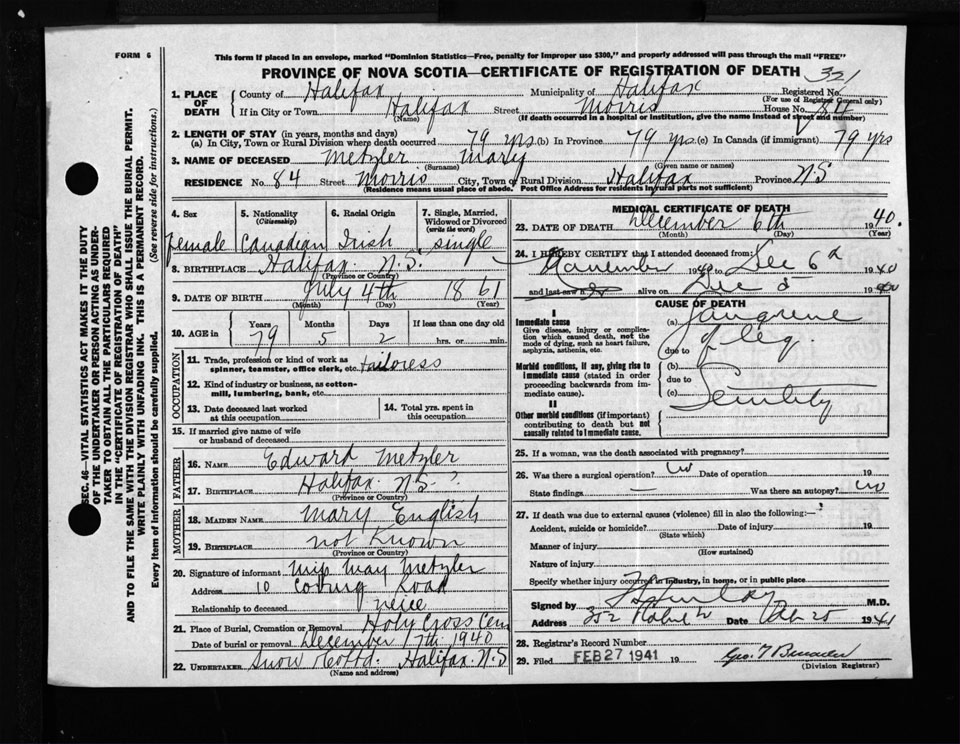 FORM 6
This form if placed in an envelope, marked "Dominion Statistics—Free, penalty for improper use $300," and properly addressed will pass through the mail "FREE"
PROVINCE OF NOVA SCOTIA—CERTIFICATE OF REGISTRATION OF DEATH 321
1. PLACE OF DEATH
County of Halifax Municipality of Halifax Registered No.
(For use of Registrar General only)
If in City or Town Halifax Street Morris House No. 84
(Name) (If death occurred in a hospital or institution, give the name instead of street and number)
2. LENGTH OF STAY (in years, months and days)
(a) In City, Town or Rural Division where death occurred 79 yrs (b) In Province 79 yrs (c) In Canada (if immigrant) 79 yrs
3. NAME OF DECEASED Metzler Mary
(Surname) (Given name or names)
RESIDENCE No. 84 Street Morris City, Town or Rural Division Halifax Province N.S
(Residence means usual place of abode. Post Office Address for residents in rural parts not sufficient)
4. Sex
female
5. Nationality
(Citizenship)
Canadian
6. Racial Origin
Irish
7. Single, Married, Widowed or Divorced
(write the word)
single
8. BIRTHPLACE Halifax. N.S.
(Province or Country)
9. DATE OF BIRTH July 4th 1861
(Month) (Day) (Year)
10. AGE in
Years Months Days If less than one day old
79 5 2 hrs. or min.
OCCUPATION
11. Trade, profession or kind of work as spinner, teamster, office clerk, etc. tailoress
12. Kind of industry or business, as cotton-mill, lumbering, bank, etc.
13. Date deceased last worked at this occupation
14. Total yrs. spent in this occupation
15. If married give name of wife or husband of deceased
FATHER
16. NAME Edward Metzler
17. BIRTHPLACE Halifax. N.S.
(Province or Country)
MOTHER
18. MAIDEN NAME Mary English
19. BIRTHPLACE not Known
(Province or Country)
20. Signature of informant Miss May Metzler
Address 10 Road
Relationship to deceased neice
21. Place of Burial, Cremation or Removal Holy Cross Cem
Date of burial or removal December 7th 1940
22. UNDERTAKER Snow Co Ltd. Halifax. N.S
(Name and address)
MEDICAL CERTIFICATE OF DEATH
23. DATE OF DEATH December 6th 1940.
(Month) (Day) (Year)
24. I HEREBY CERTIFY that I attended deceased from:
November 1940 to Dec 6th 1940
and last saw alive on Dec 5 1940
CAUSE OF DEATH
I
Immediate cause
Give disease, injury or complication which caused death, not the mode of dying, such as heart failure, asphyxia, asthenia, etc.
Morbid conditions, if any, giving rise to immediate cause (stated in order proceeding backwards from immediate cause).
II
Other morbid conditions (if important) contributing to death but not causally related to immediate cause.
(a) Gangrene
due to of leg.
(b)
due to
(c) Senility
25. If a woman, was the death associated with pregnancy?
26. Was there a surgical operation? no Date of operation 19
State findings — Was there an autopsy? no
27. If death was due to external causes (violence) fill in also the following:—
Accident, suicide or homicide? Date of injury 19
(State which)
Manner of injury
(How sustained)
Nature of injury
Specify whether injury occurred in industry, in home, or in public place
Signed by M.D.
Address 352 Robie St Date Feb 25 1941
28. Registrar's Record Number
29. Filed FEB 27 1941 19 Geo. T
(Division Registrar)
SEC. 46—VITAL STATISTICS ACT MAKES IT THE DUTY
OF THE UNDERTAKER OR PERSON ACTING AS UNDER-
TAKER TO OBTAIN ALL THE PARTICULARS REQUIRED
IN THE "CERTIFICATE OF REGISTRATION OF DEATH"
AND TO FILE THE SAME WITH THE DIVISION REGISTRAR WHO SHALL ISSUE THE BURIAL PERMIT.
WRITE PLAINLY WITH UNFADING INK. THIS IS A PERMANENT RECORD.
Every item of information should be carefully supplied. (See reverse side for instructions.)